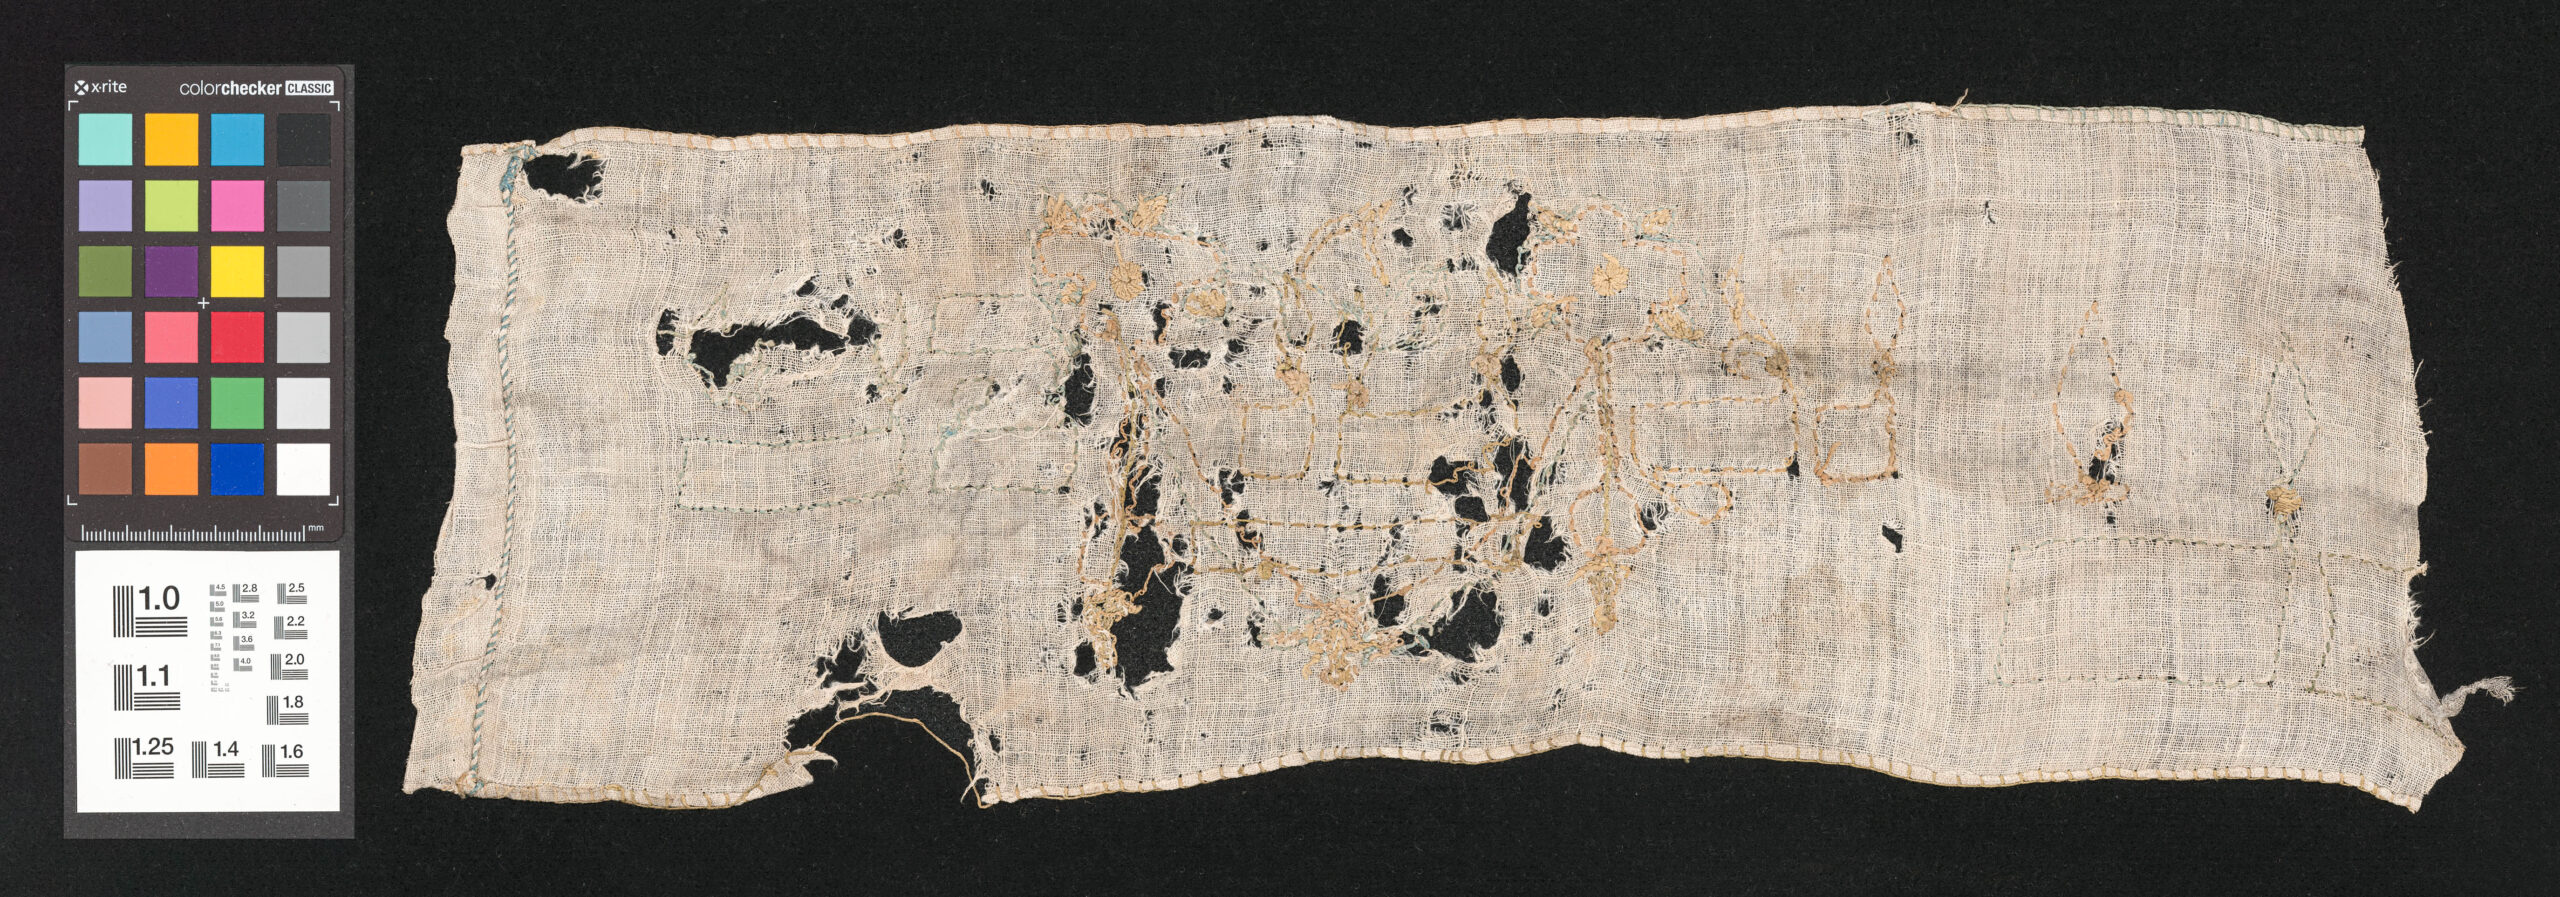 x·rite colorchecker CLASSIC
mm
1.0
4.5
2.8
2.5
5.0
5.6
3.2
2.2
6.3
3.6
7.1
1.1
4.0
2.0
1.8
1.25
1.4
1.6